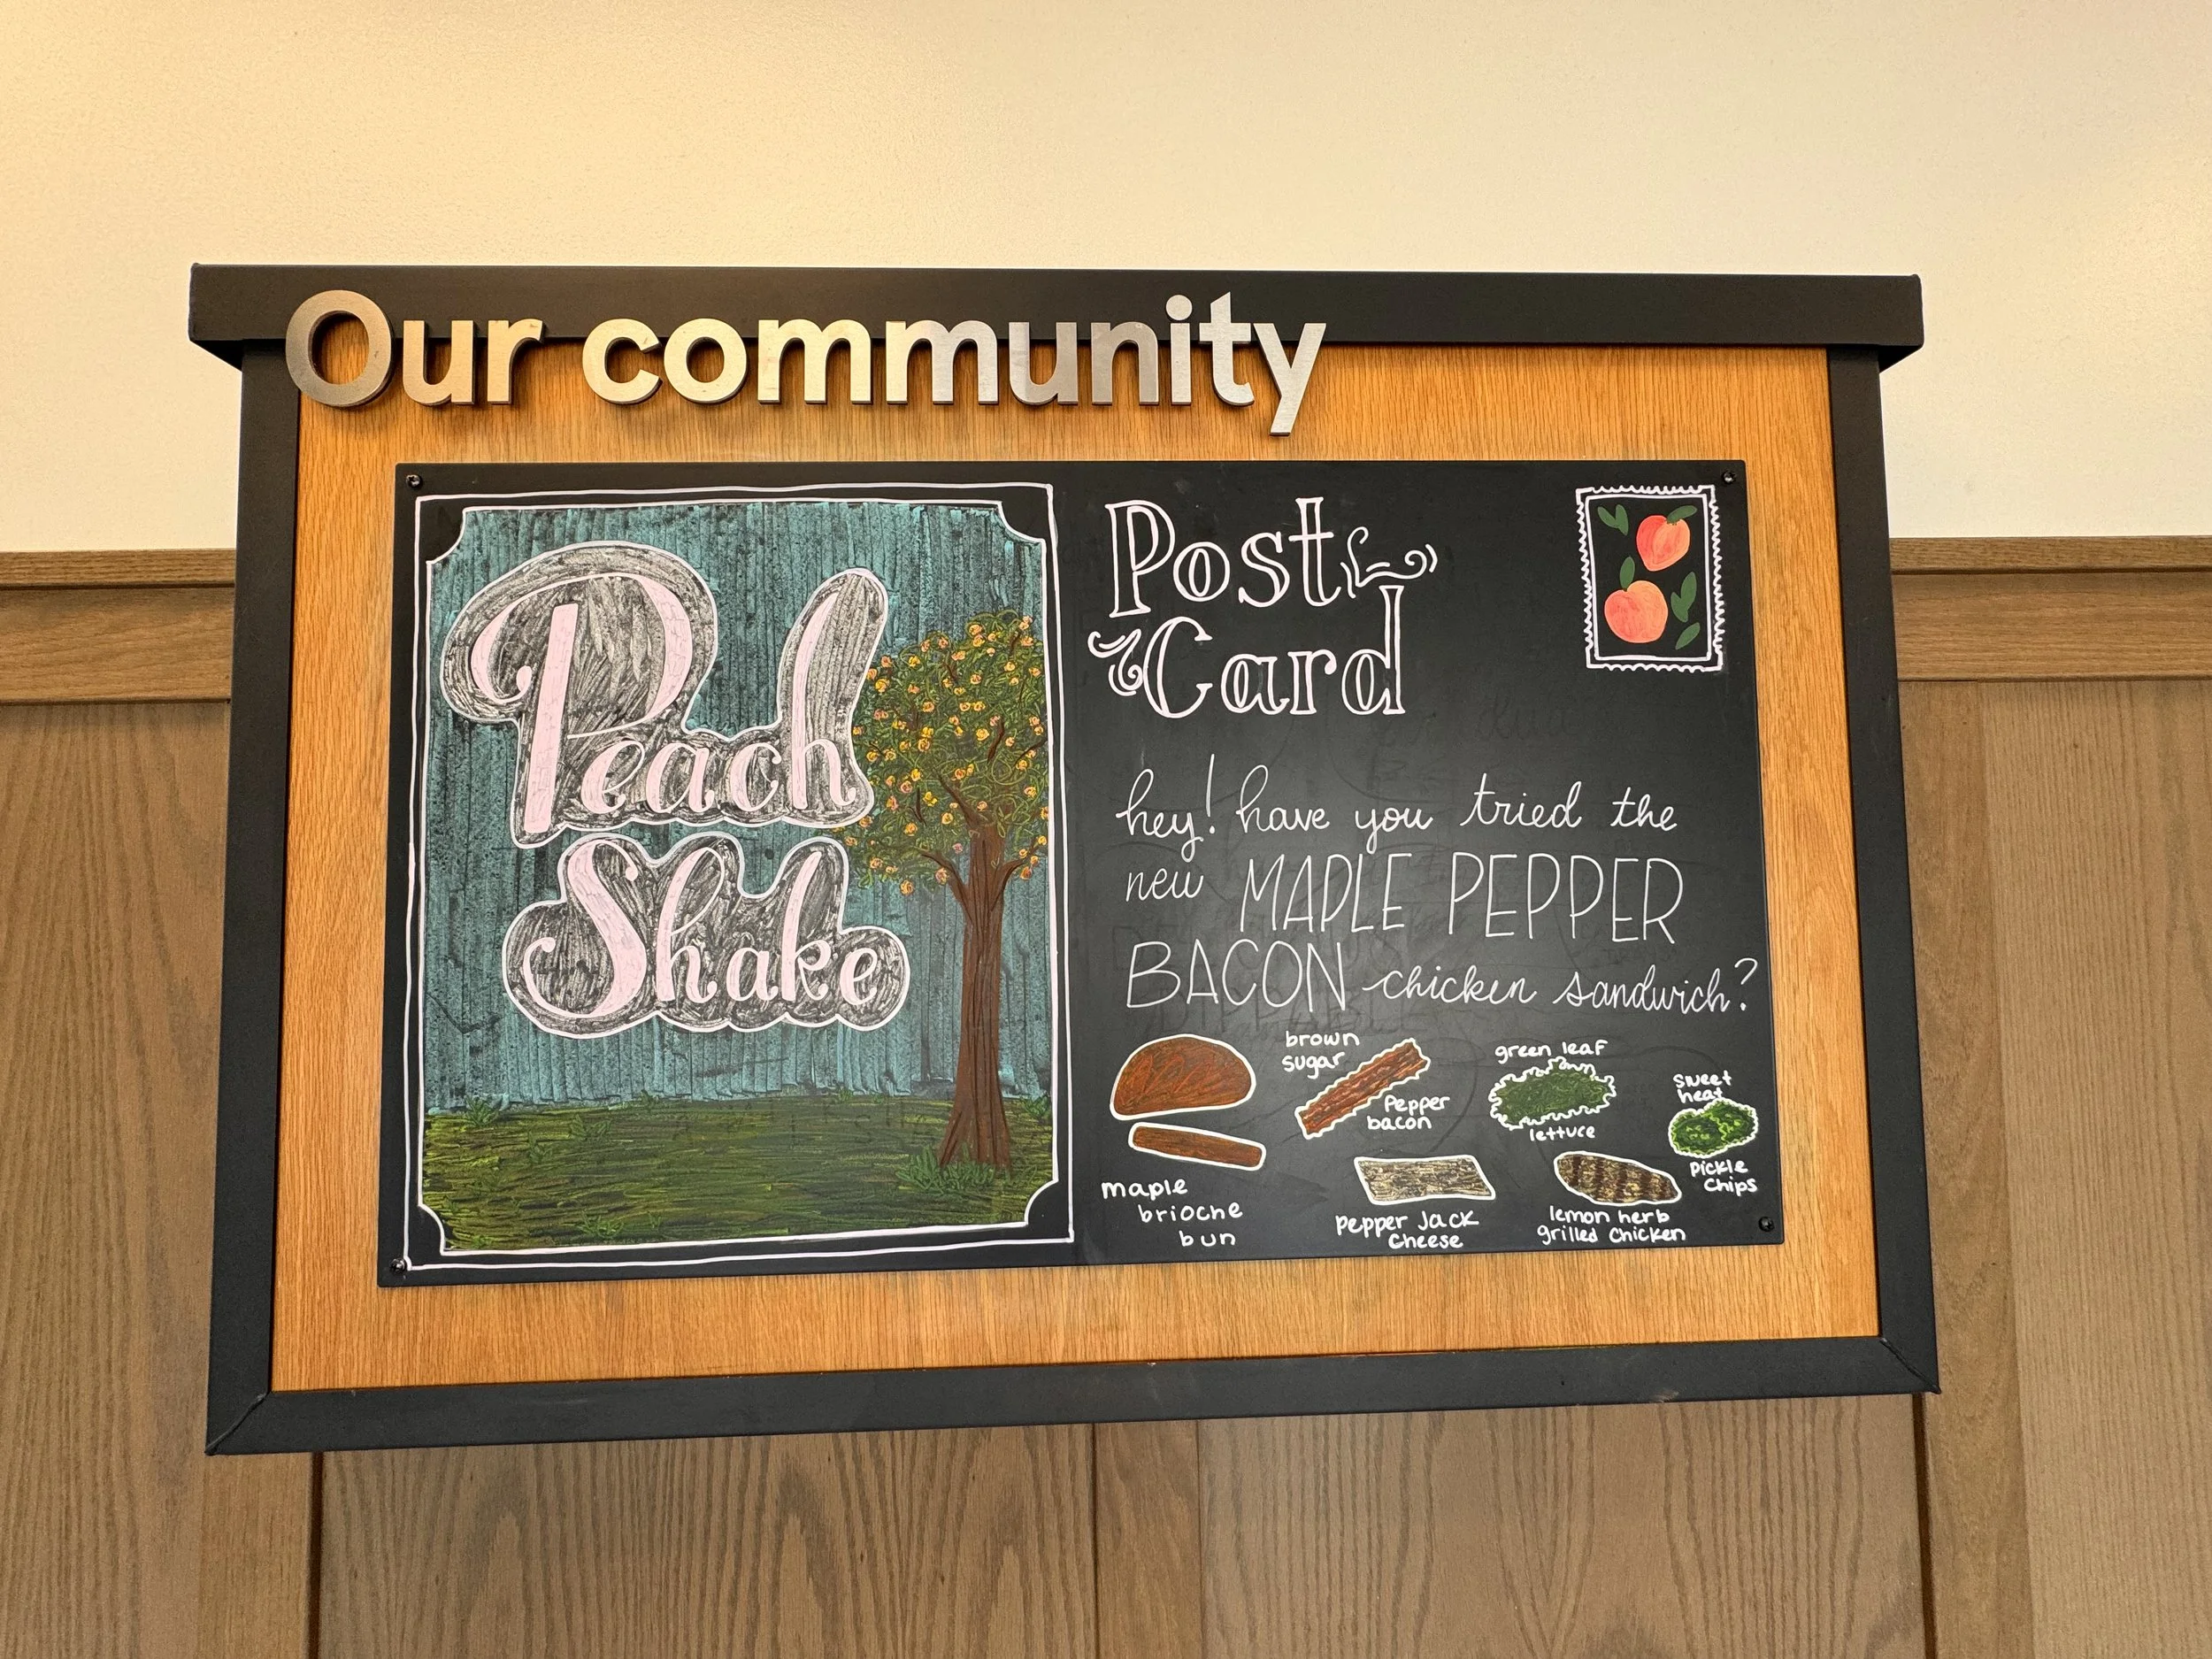 Our community
Peach
Shake
Post
Card
hey! have you tried the
new MAPLE PEPPER
BACON chicken sandwich?
maple
brioche
bun
brown
sugar
Pepper
bacon
pepper Jack
Cheese
green leaf
lettuce
lemon herb
grilled Chicken
sweet
heat
pickle
Chips